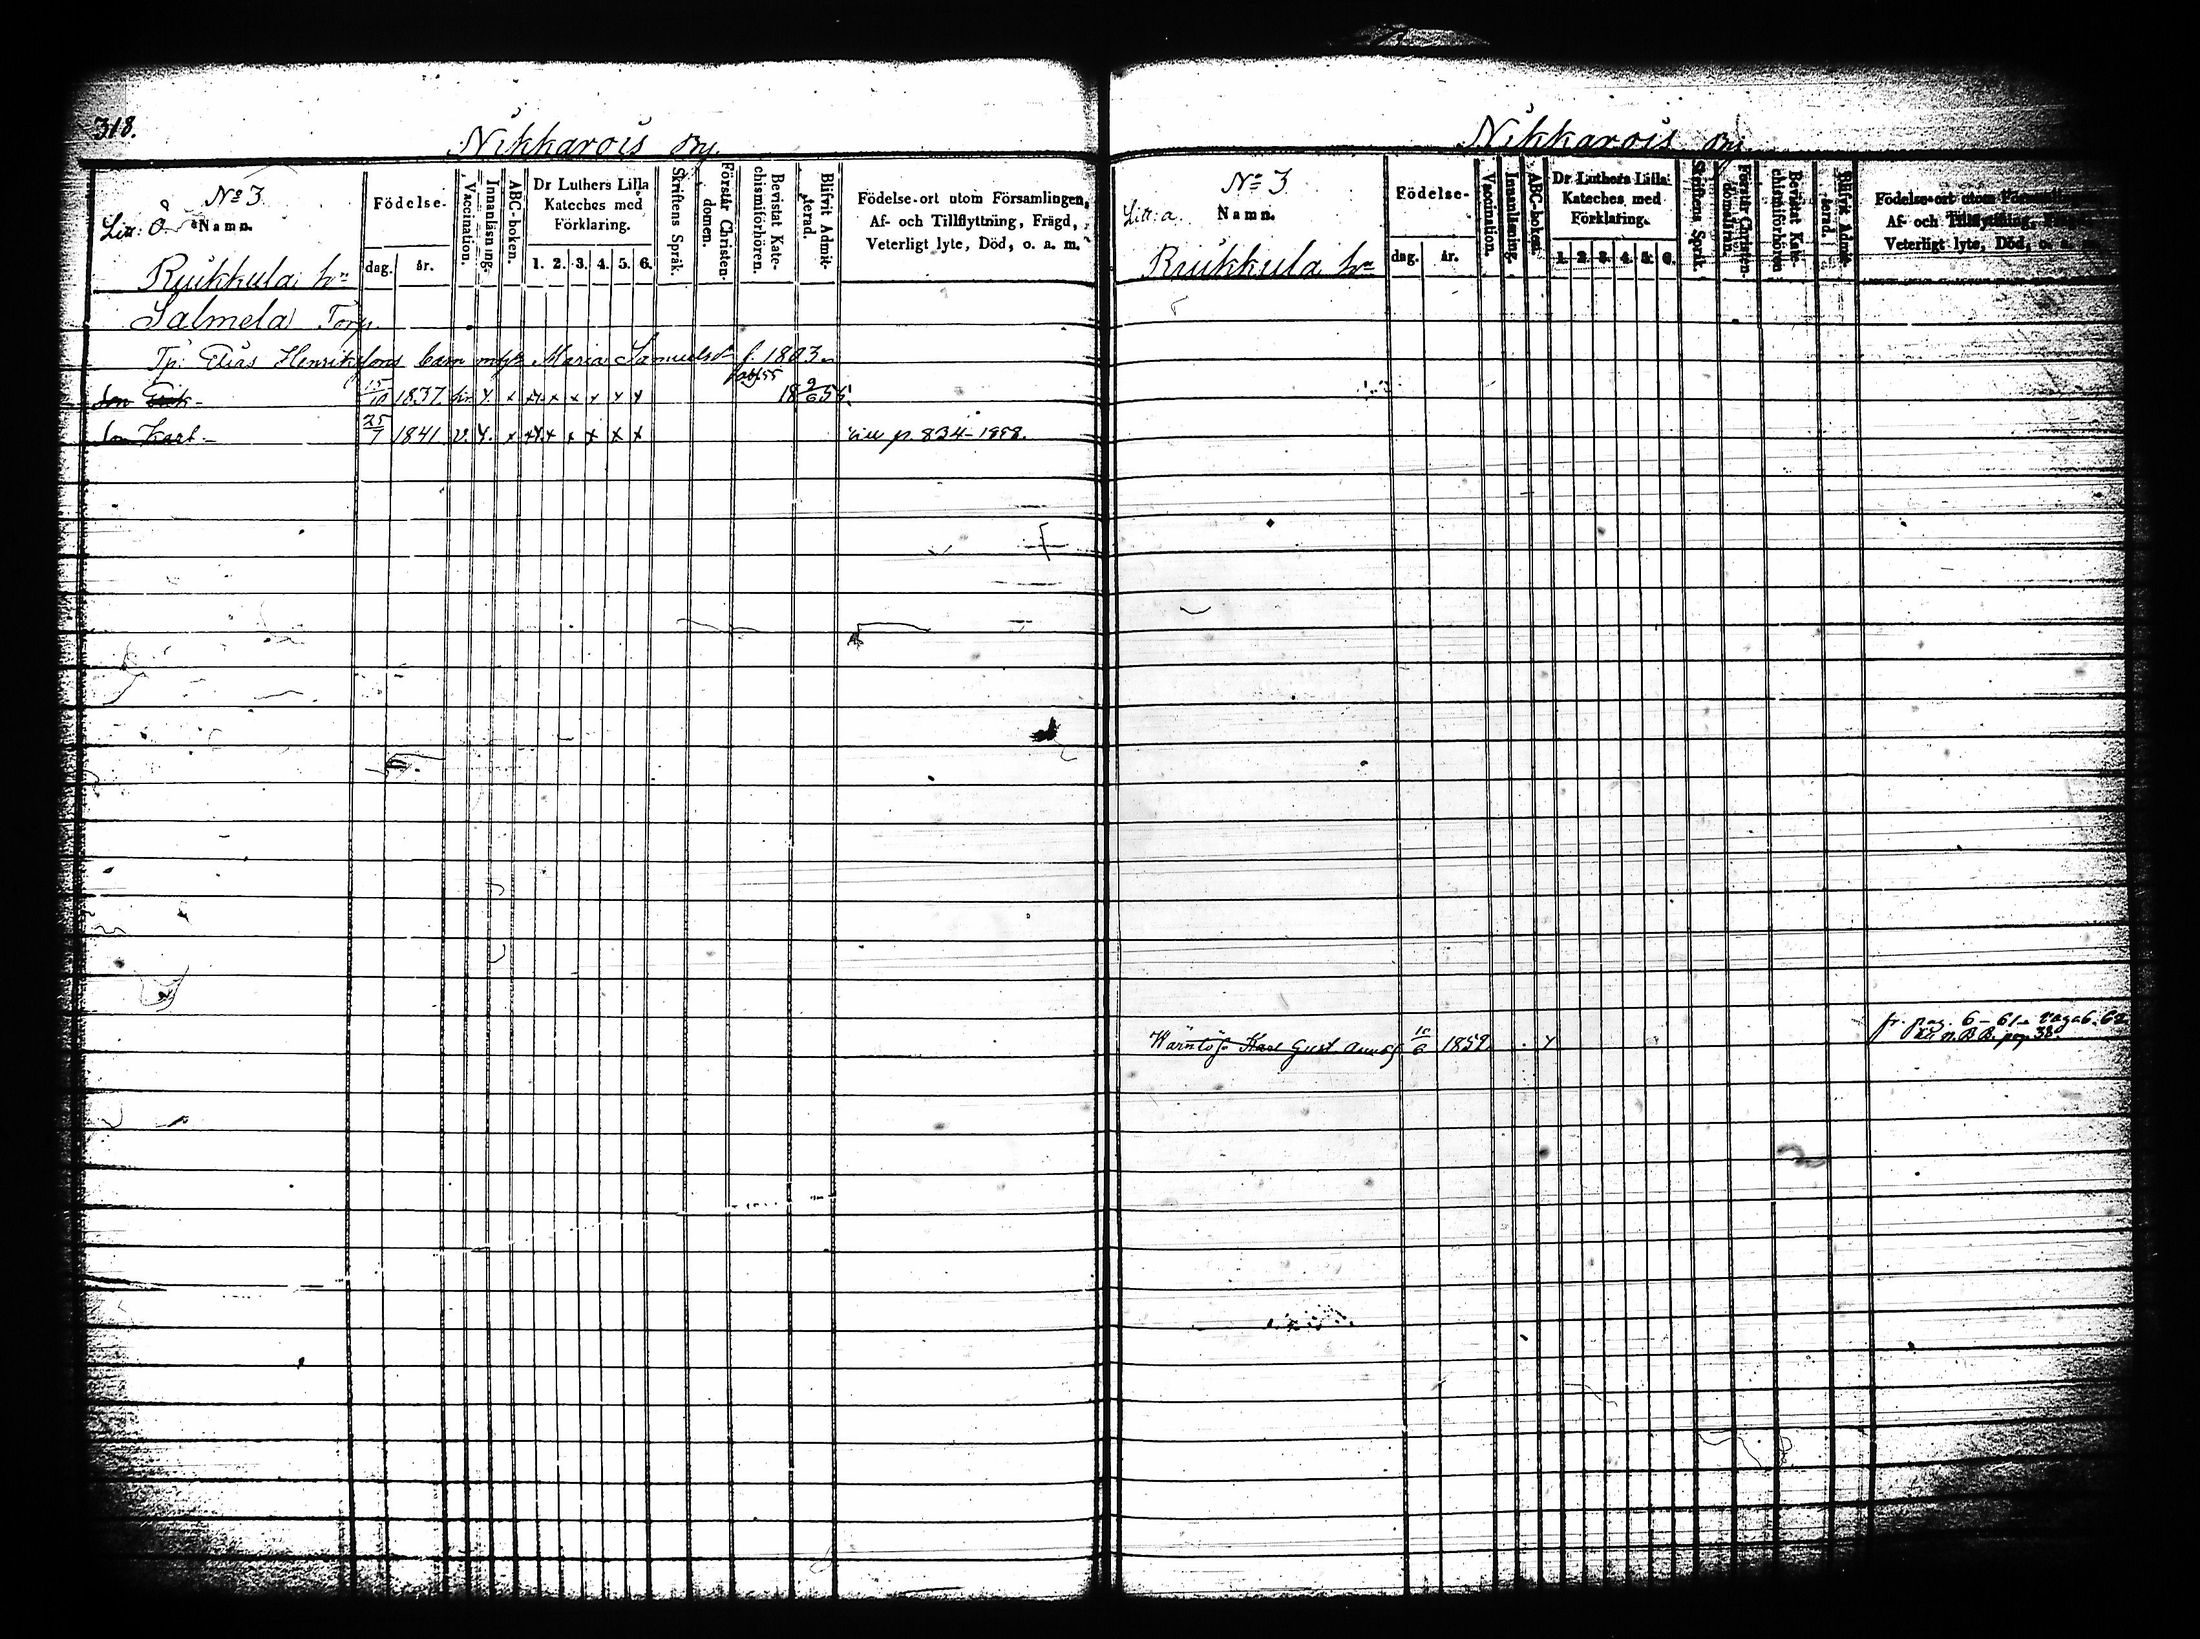 318.
Nikkarois By.
No 3
Litt: Å. Namn.
Födelse-
dag. år.
Vaccination.
Innanläsning.
ABC-boken.
Dr Luthers Lilla
Kateches med
Förklaring.
1. 2. 3. 4. 5. 6.
Skriftens Språk.
Förstår Christen-
domen.
Bevistat Kate-
chismiförhören.
Blifvit Admit-
terad.
Födelse-ort utom Församlingen,
Af- och Tillflyttning, Frägd,
Veterligt lyte, Död, o. a. m.
Ruikkula hn
Salmela Torp.
Tp: Elias Henriksfons barn m/h Maria Samuelsdr f. 1803.
Son Erik 15/10 1837. x x x x x x x 18 9/6 55.
Son Karl 25/7 1841 v. x x x x x x p. 834-1858.
Nikkarois By.
No 3
Litt: a. Namn.
Födelse-
dag. år.
Vaccination.
Innanläsning.
ABC-boken.
Dr Luthers Lilla
Kateches med
Förklaring.
1. 2. 3. 4. 5. 6.
Skriftens Språk.
Förstår Christen-
domsläran.
Bevistat Kate-
chismiförhören
Blifvit Admit-
terad.
Födelse-ort utom Församlingen
Af- och Tillflyttning,
Veterligt lyte, Död, o. a. m.
Ruikkula hn
fr. pag. 6-61
Karl Gust. 10/6 1852. B.B. pag. 38.